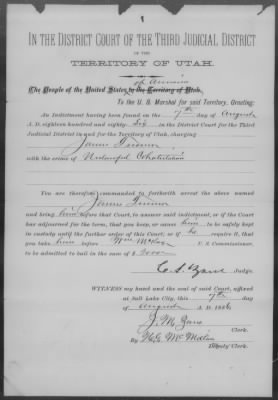 IN THE DISTRICT COURT OF THE THIRD JUDICIAL DISTRICT
OF THE
TERRITORY OF UTAH.
of America
The People of the United States in the Territory of Utah,
To the U. S. Marshal for said Territory, Greeting:
An Indictment having been found on the 7th day of August
A. D. eighteen hundred and eighty-six in the District Court for the Third
Judicial District in and for the Territory of Utah, charging
James
with the crime of Unlawful Cohabitation
You are therefore commanded to forthwith arrest the above named
James
and bring him before that Court, to answer said indictment, or if the Court
has adjourned for the term, that you keep, or cause him to be safely kept
in custody until the further order of this Court; or if he require it, that
you take him before Wm McKay U. S. Commissioner,
to be admitted to bail in the sum of $
C. S. Zane Judge.
WITNESS my hand and the seal of said Court, affixed
at Salt Lake City, this 7th day
of August A. D. 1886
J. M. Zane
Clerk.
By H. G. McMillan
Deputy Clerk.